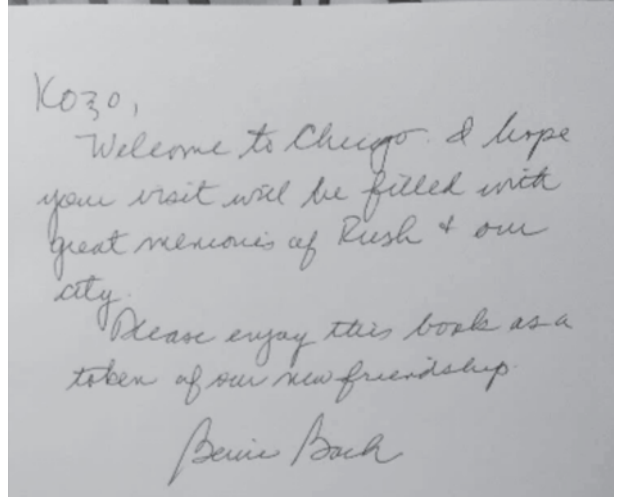 Kozo,
Welcome to Chicago. I hope
you visit will be filled with
great memories of Rush & our
city.
Please enjoy this book as a
token of our new friendship.
Bernie Bach